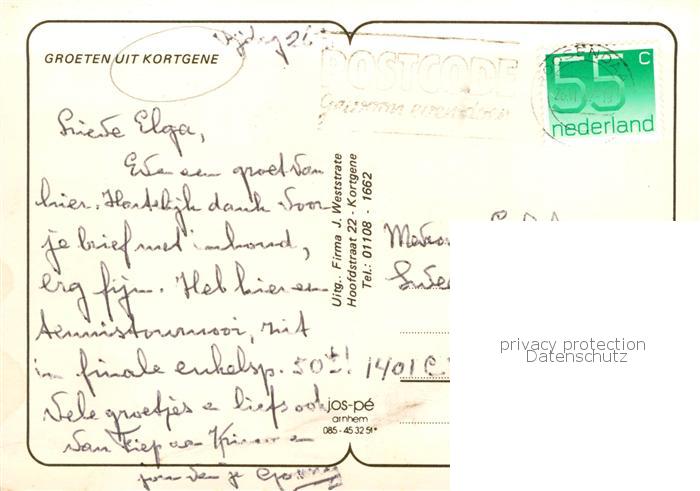 Vrijdag 26
GROETEN UIT KORTGENE
POSTCODE
Gewoon even doen
55 c
nederland
Lieve Elga,
Even een groet van
hier. Hartelijk dank voor
je brief met inhoud,
erg fijn. Heb hier een
tennistournooi, zit
in finale enkelsp. 50+!
Vele groetjes en liefs ook
van Fiep en
jou van je
Uitg. Firma J. Weststrate
Hoofdstraat 22 - Kortgene
Tel.: 01108 - 1662
jos-pé
arnhem
085-45 32 51*
1401 C
privacy protection
Datenschutz